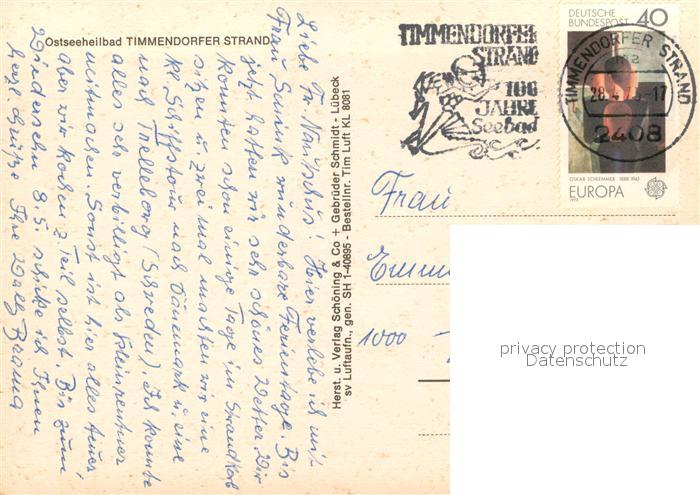 Ostseeheilbad TIMMENDORFER STRAND
Liebe Fr. hier verlebe ich mit
Frau wunderbare Ferientage. Bis
jetzt hatten wir sehr schönes Wetter. Wir
konnten schon einige Tage im Strandkorb
sitzen u. zwei mal machten wir eine
kl. Schiffstour nach Dänemark u. eine
nach Trelleborg (Schweden). Ich konnte
alles sehr verbilligt als Kleinrentner
mitmachen. Sonst ist hier alles teuer
aber wir kochen z. Teil selbst. Bis zum
Wiedersehn 8.5. schicke ich Ihnen
herzl. Grüße Ihre Braun
Herst. u. Verlag Schöning & Co + Gebrüder Schmidt - Lübeck
sv Luftaufn., gen. SH 1-40895 - Bestellnr. Tim Luft KL 8081
TIMMENDORFER
STRAND
100
JAHRE
Seebad
DEUTSCHE
BUNDESPOST 40
TIMMENDORFER STRAND
28.4. -17
2408
OSKAR SCHLEMMER 1888-1943
EUROPA
1975
Frau
1000
privacy protection
Datenschutz